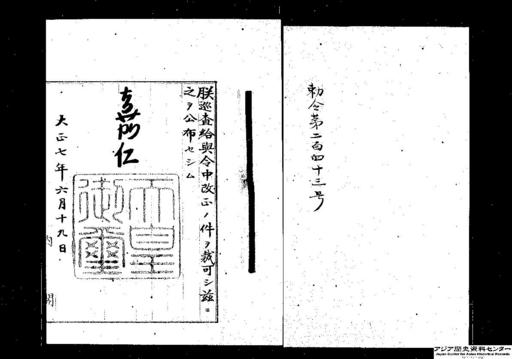 勅令第二百四十三号
朕巡査給與令中改正ノ件ヲ裁可シ茲ニ
之ヲ公布セシム
嘉仁
天皇
御璽
大正七年六月十九日
内閣
アジア歴史資料センター
Japan Center for Asian Historical Records